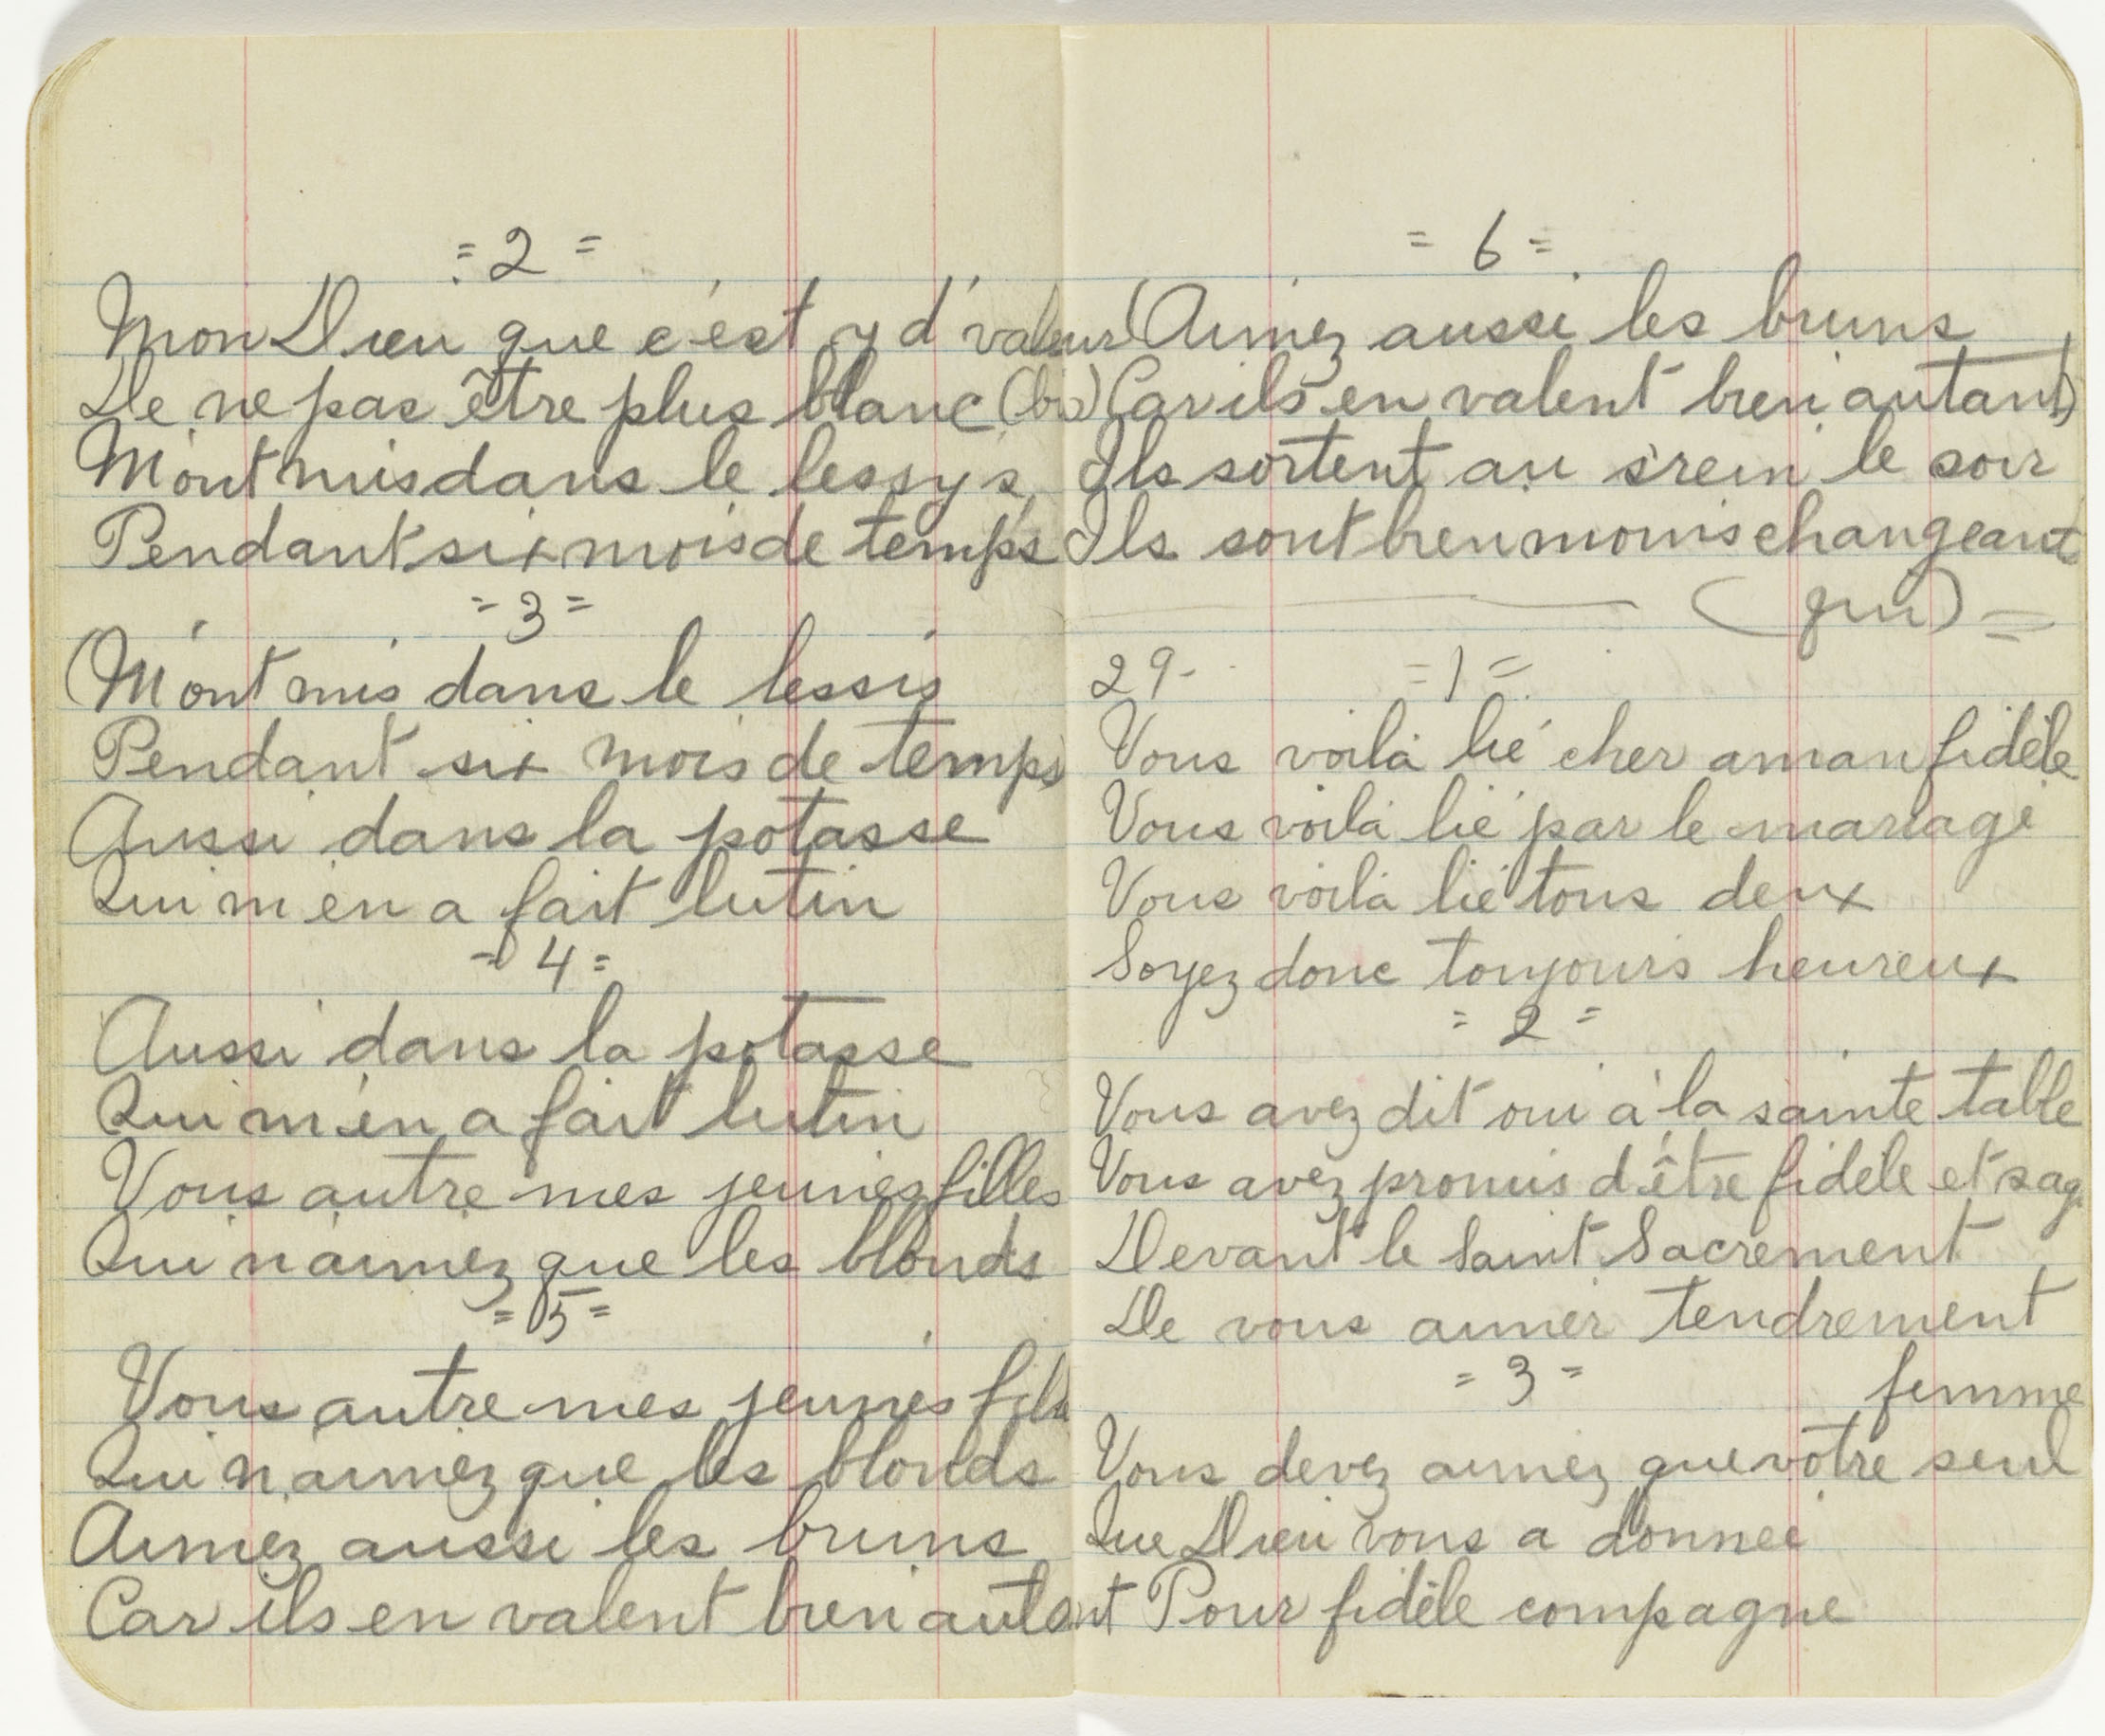 = 2 =
Mon Dieu que c'est y d'valeur
De ne pas être plus blanc (bis)
M'ont mis dans le lessys
Pendant six mois de temps
= 3 =
(M'ont mis dans le lessis
Pendant six mois de temps)
Aussi dans la potasse
Qui m'en a fait lutin
= 4 =
Aussi dans la potasse
Qui m'en a fait lutin
Vous autre mes jeunes filles
Qui n'aimez que les blonds
= 5 =
Vous autre mes jeunes fills
Qui n'aimez que les blonds
Aimez aussi les bruns
Car ils en valent bien autant
= 6 =
(Aimez aussi les bruns
Car ils en valent bien autant)
Ils sortent au s'rein le soir
Ils sont bien moins changeant
(fin) =
29- = 1 =
Vous voilà lié cher aman fidèle
Vous voilà lié par le mariage
Vous voilà lié tous deux
Soyez donc toujours heureux
= 2 =
Vous avez dit oui à la sainte table
Vous avez promis d'être fidèle et sage
Devant le Saint Sacrement
De vous aimer tendrement
= 3 =
femme
Vous devez aimez que votre seul
Que Dieu vous a donnée
Pour fidèle compagne